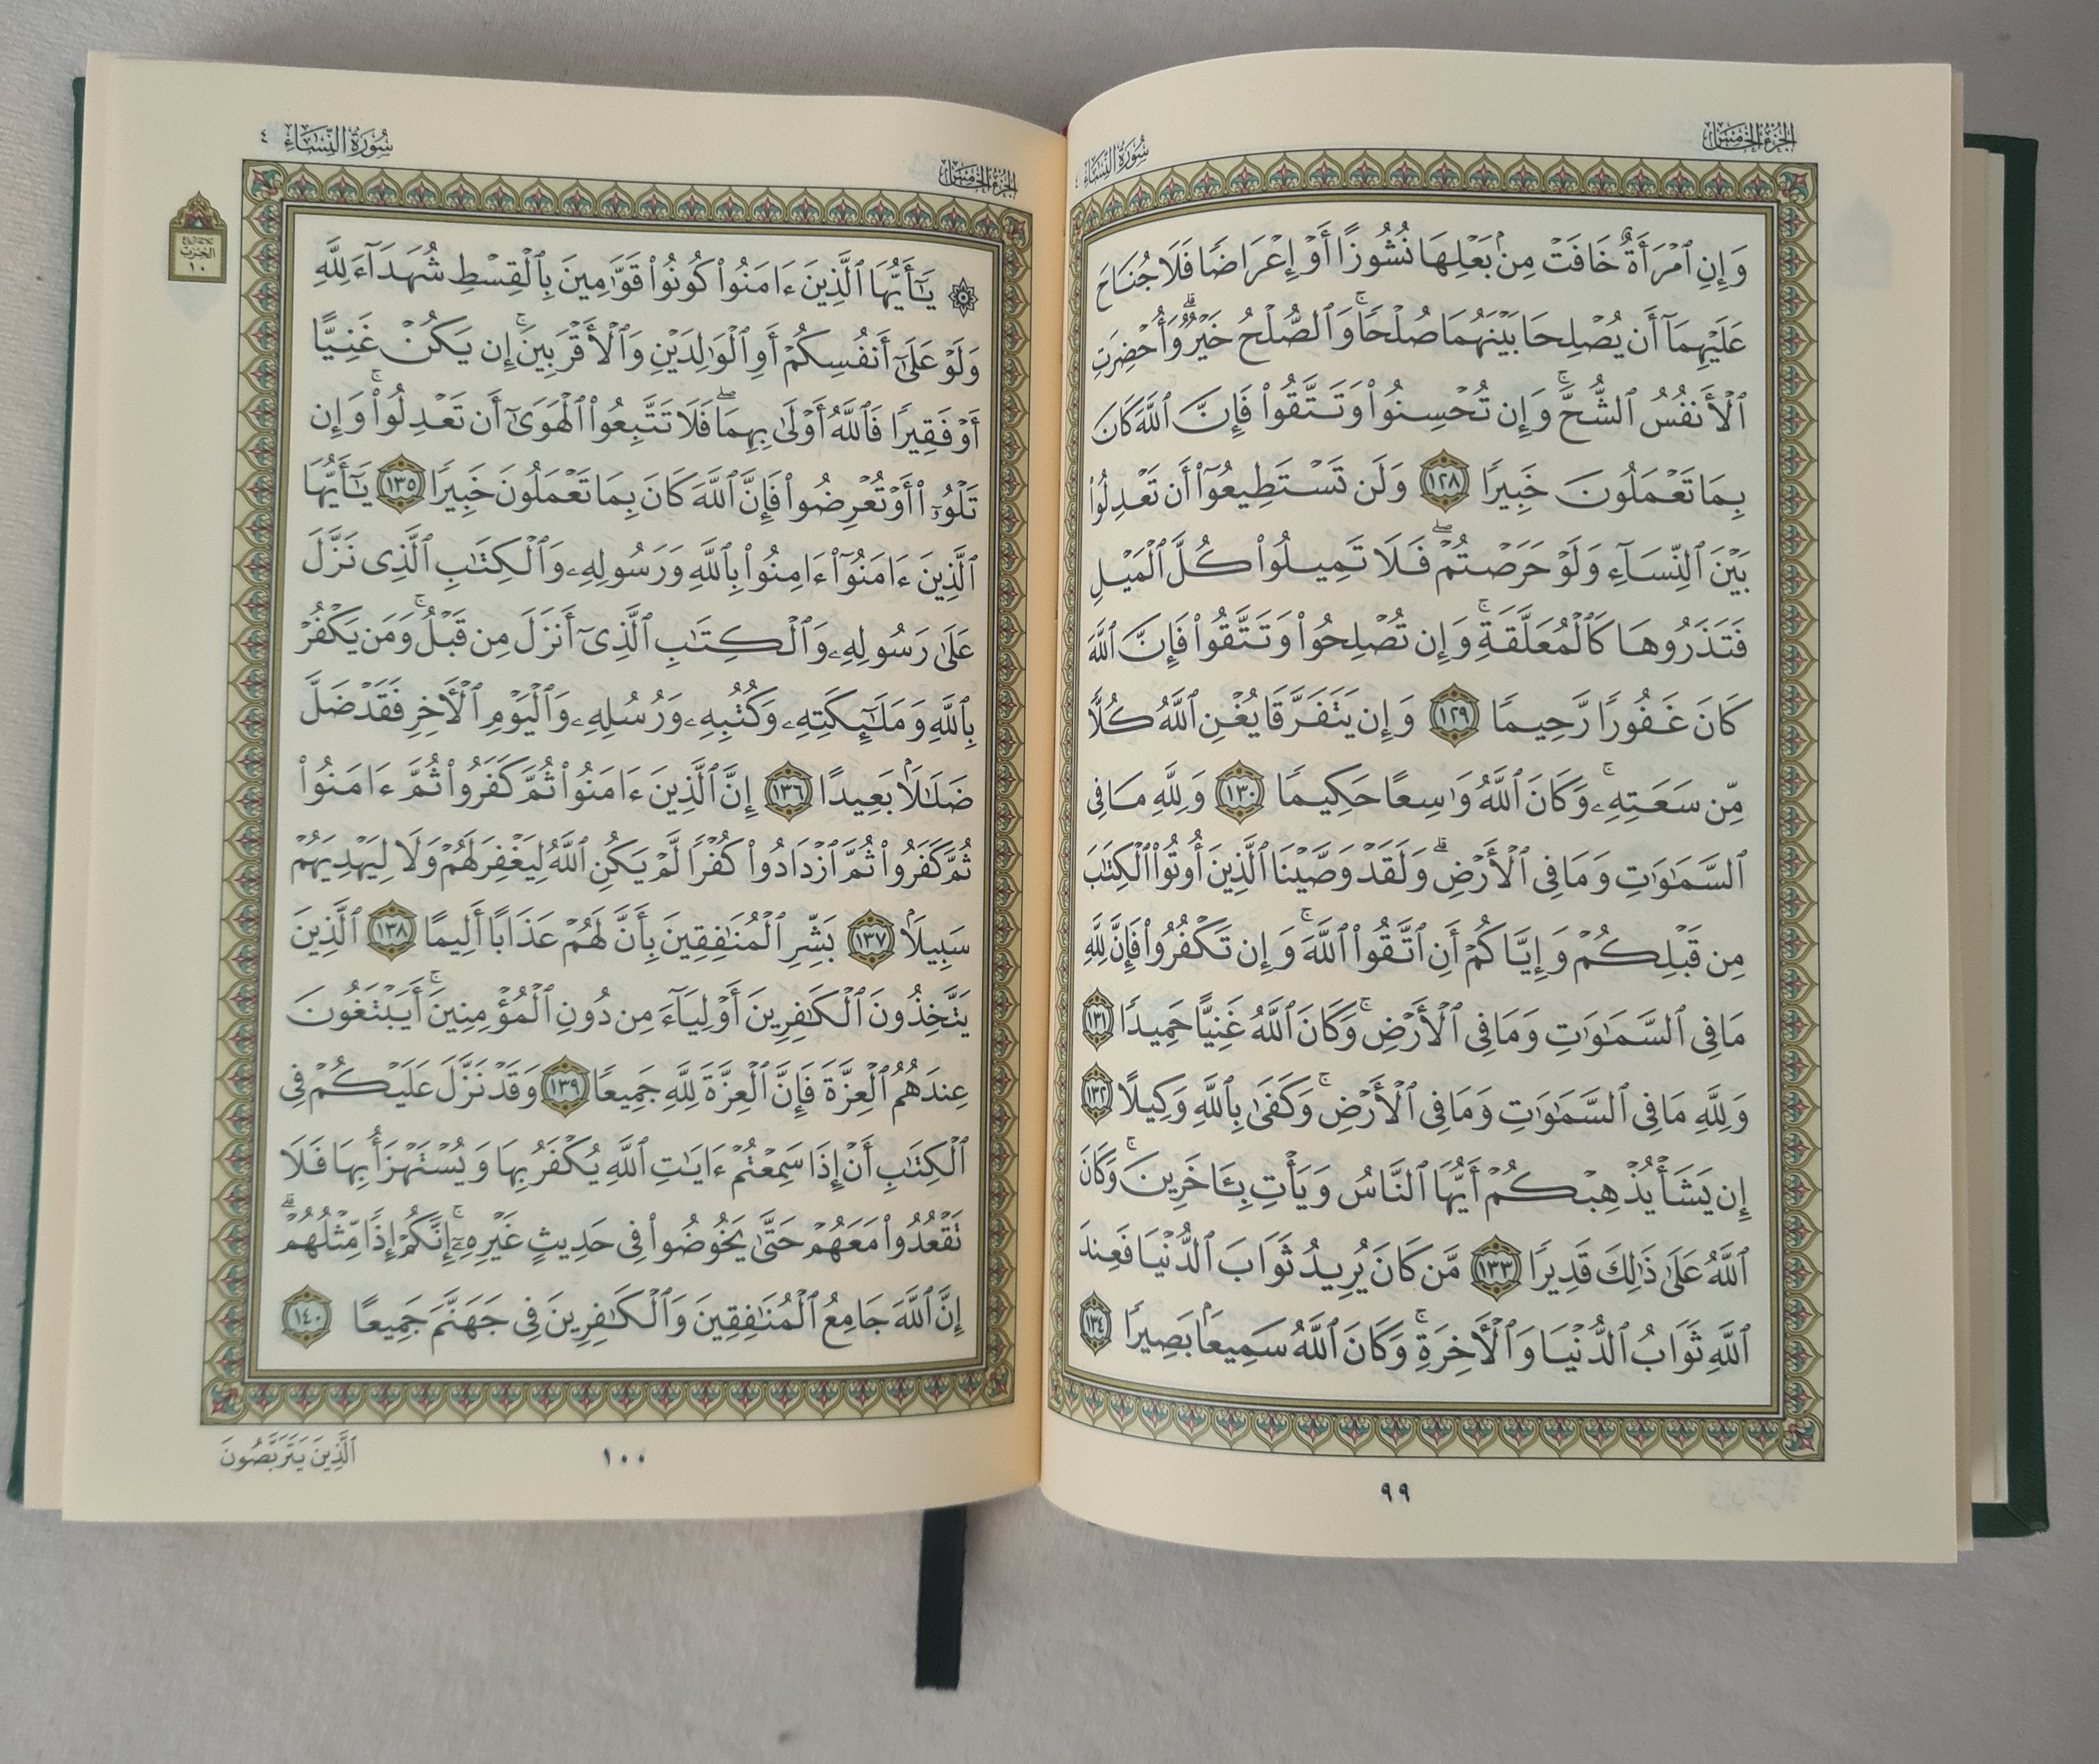 الجزء الخامس
سورة النساء ٤
وَإِنِ ٱمْرَأَةٌ خَافَتْ مِنۢ بَعْلِهَا نُشُوزًا أَوْ إِعْرَاضًا فَلَا جُنَاحَ
عَلَيْهِمَآ أَن يُصْلِحَا بَيْنَهُمَا صُلْحًا ۚ وَٱلصُّلْحُ خَيْرٌ ۗ وَأُحْضِرَتِ
ٱلْأَنفُسُ ٱلشُّحَّ ۚ وَإِن تُحْسِنُوا۟ وَتَتَّقُوا۟ فَإِنَّ ٱللَّهَ كَانَ
بِمَا تَعْمَلُونَ خَبِيرًا ١٢٨ وَلَن تَسْتَطِيعُوٓا۟ أَن تَعْدِلُوا۟
بَيْنَ ٱلنِّسَآءِ وَلَوْ حَرَصْتُمْ ۖ فَلَا تَمِيلُوا۟ كُلَّ ٱلْمَيْلِ
فَتَذَرُوهَا كَٱلْمُعَلَّقَةِ ۚ وَإِن تُصْلِحُوا۟ وَتَتَّقُوا۟ فَإِنَّ ٱللَّهَ
كَانَ غَفُورًا رَّحِيمًا ١٢٩ وَإِن يَتَفَرَّقَا يُغْنِ ٱللَّهُ كُلًّا
مِّن سَعَتِهِۦ ۚ وَكَانَ ٱللَّهُ وَٰسِعًا حَكِيمًا ١٣٠ وَلِلَّهِ مَا فِى
ٱلسَّمَٰوَٰتِ وَمَا فِى ٱلْأَرْضِ ۗ وَلَقَدْ وَصَّيْنَا ٱلَّذِينَ أُوتُوا۟ ٱلْكِتَٰبَ
مِن قَبْلِكُمْ وَإِيَّاكُمْ أَنِ ٱتَّقُوا۟ ٱللَّهَ ۚ وَإِن تَكْفُرُوا۟ فَإِنَّ لِلَّهِ
مَا فِى ٱلسَّمَٰوَٰتِ وَمَا فِى ٱلْأَرْضِ ۚ وَكَانَ ٱللَّهُ غَنِيًّا حَمِيدًا ١٣١
وَلِلَّهِ مَا فِى ٱلسَّمَٰوَٰتِ وَمَا فِى ٱلْأَرْضِ ۚ وَكَفَىٰ بِٱللَّهِ وَكِيلًا ١٣٢
إِن يَشَأْ يُذْهِبْكُمْ أَيُّهَا ٱلنَّاسُ وَيَأْتِ بِـَٔاخَرِينَ ۚ وَكَانَ
ٱللَّهُ عَلَىٰ ذَٰلِكَ قَدِيرًا ١٣٣ مَّن كَانَ يُرِيدُ ثَوَابَ ٱلدُّنْيَا فَعِندَ
ٱللَّهِ ثَوَابُ ٱلدُّنْيَا وَٱلْـَٔاخِرَةِ ۚ وَكَانَ ٱللَّهُ سَمِيعًۢا بَصِيرًا ١٣٤
٩٩
الجزء الخامس
سورة النساء ٤
ثلاثة ارباع
الحزب
١٠
۞ يَٰٓأَيُّهَا ٱلَّذِينَ ءَامَنُوا۟ كُونُوا۟ قَوَّٰمِينَ بِٱلْقِسْطِ شُهَدَآءَ لِلَّهِ
وَلَوْ عَلَىٰٓ أَنفُسِكُمْ أَوِ ٱلْوَٰلِدَيْنِ وَٱلْأَقْرَبِينَ ۚ إِن يَكُنْ غَنِيًّا
أَوْ فَقِيرًا فَٱللَّهُ أَوْلَىٰ بِهِمَا ۖ فَلَا تَتَّبِعُوا۟ ٱلْهَوَىٰٓ أَن تَعْدِلُوا۟ ۚ وَإِن
تَلْوُۥٓا۟ أَوْ تُعْرِضُوا۟ فَإِنَّ ٱللَّهَ كَانَ بِمَا تَعْمَلُونَ خَبِيرًا ١٣٥ يَٰٓأَيُّهَا
ٱلَّذِينَ ءَامَنُوٓا۟ ءَامِنُوا۟ بِٱللَّهِ وَرَسُولِهِۦ وَٱلْكِتَٰبِ ٱلَّذِى نَزَّلَ
عَلَىٰ رَسُولِهِۦ وَٱلْكِتَٰبِ ٱلَّذِىٓ أَنزَلَ مِن قَبْلُ ۚ وَمَن يَكْفُرْ
بِٱللَّهِ وَمَلَٰٓئِكَتِهِۦ وَكُتُبِهِۦ وَرُسُلِهِۦ وَٱلْيَوْمِ ٱلْـَٔاخِرِ فَقَدْ ضَلَّ
ضَلَٰلًۢا بَعِيدًا ١٣٦ إِنَّ ٱلَّذِينَ ءَامَنُوا۟ ثُمَّ كَفَرُوا۟ ثُمَّ ءَامَنُوا۟
ثُمَّ كَفَرُوا۟ ثُمَّ ٱزْدَادُوا۟ كُفْرًا لَّمْ يَكُنِ ٱللَّهُ لِيَغْفِرَ لَهُمْ وَلَا لِيَهْدِيَهُمْ
سَبِيلًۢا ١٣٧ بَشِّرِ ٱلْمُنَٰفِقِينَ بِأَنَّ لَهُمْ عَذَابًا أَلِيمًا ١٣٨ ٱلَّذِينَ
يَتَّخِذُونَ ٱلْكَٰفِرِينَ أَوْلِيَآءَ مِن دُونِ ٱلْمُؤْمِنِينَ ۚ أَيَبْتَغُونَ
عِندَهُمُ ٱلْعِزَّةَ فَإِنَّ ٱلْعِزَّةَ لِلَّهِ جَمِيعًا ١٣٩ وَقَدْ نَزَّلَ عَلَيْكُمْ فِى
ٱلْكِتَٰبِ أَنْ إِذَا سَمِعْتُمْ ءَايَٰتِ ٱللَّهِ يُكْفَرُ بِهَا وَيُسْتَهْزَأُ بِهَا فَلَا
تَقْعُدُوا۟ مَعَهُمْ حَتَّىٰ يَخُوضُوا۟ فِى حَدِيثٍ غَيْرِهِۦٓ ۚ إِنَّكُمْ إِذًا مِّثْلُهُمْ ۗ
إِنَّ ٱللَّهَ جَامِعُ ٱلْمُنَٰفِقِينَ وَٱلْكَٰفِرِينَ فِى جَهَنَّمَ جَمِيعًا ١٤٠
ٱلَّذِينَ يَتَرَبَّصُونَ
١٠٠